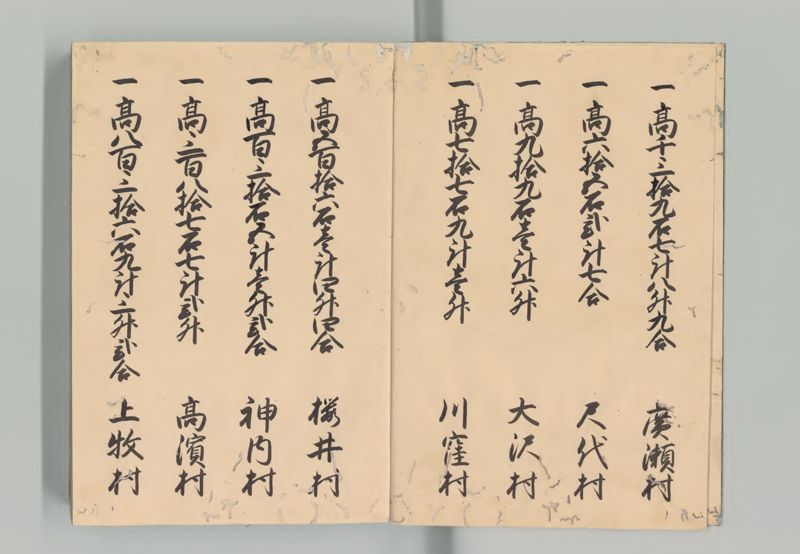 一髙千三拾九石七斗八升九合　廣瀬村
一髙六拾五石弐斗七合　尺代村
一髙九拾九石壱斗六升　大沢村
一髙七拾七石九斗壱升　川窪村
一髙五百拾六石壱斗四升四合　桜井村
一髙百三拾石五斗壱升弐合　神内村
一髙三百八拾七石七斗弐升　髙濱村
一髙八百三拾六石九斗三升弐合　上牧村